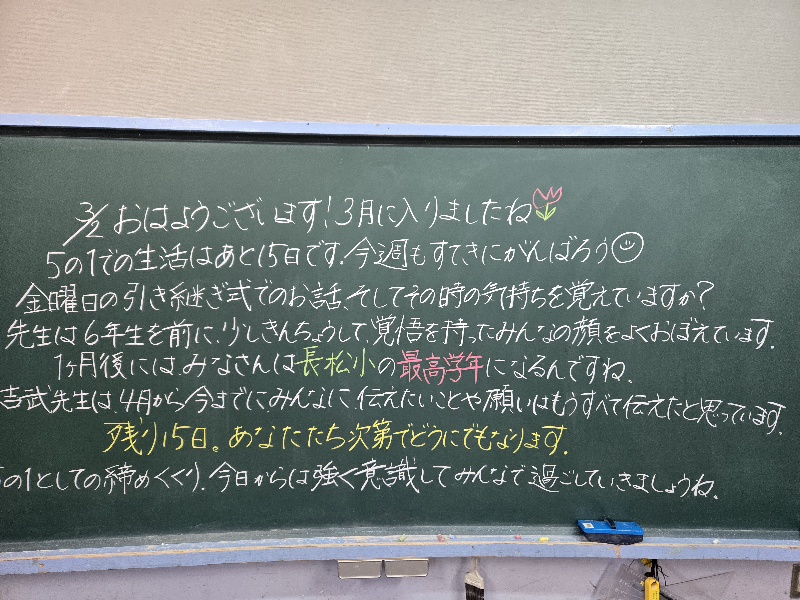 3/2 おはようございます!3月に入りましたね
5の1での生活はあと15日です.今週もすてきにがんばろう
金曜日の引き継ぎ式でのお話、そしてその時の気持ちを覚えていますか?
先生は6年生を前に、少しきんちょうして、覚悟を持ったみんなの顔をよくおぼえています.
1ヶ月後には、みなさんは長松小の最高学年になるんですね.
吉武先生は、4月から今までに、みんなに、伝えたいことや願いはもうすべて伝えたと思っています.
残り15日。あなたたち次第でどうにでもなります.
の1としての締めくくり.今日からは強く意識してみんなで過ごしていきましょうね.